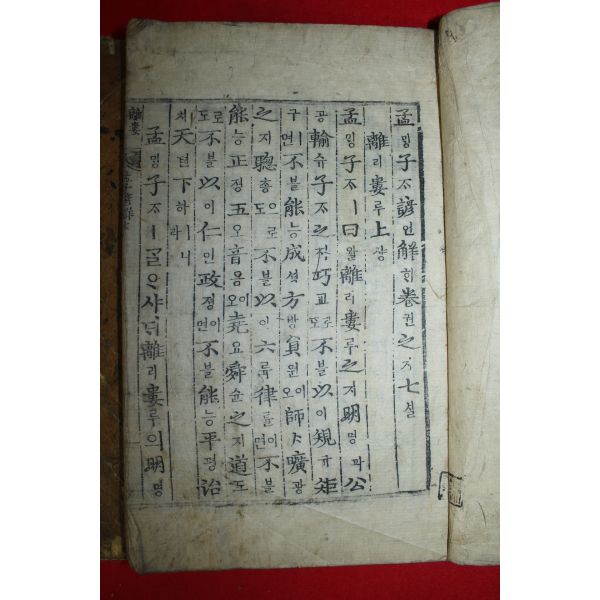 孟ᄆᆡᆼ子ᄌᆞ諺언解ᄒᆡ卷권之지七칠
離리婁루上샹
孟ᄆᆡᆼ子ᄌᆞㅣ曰왈離리婁루之지明명과公
공輸슈子ᄌᆞ之지巧교로도不블以이規규矩
구ㅣ면不블能능成셩方방員원이오師ᄉᆞ曠광
之지聰총으로도不블以이六륙律률이면不블
能능正졍五오音음이오堯요舜슌之지道도
로도不블以이仁인政졍이면不블能능平평治
티天텬下하ㅣ니라
孟ᄆᆡᆼ子ᄌᆞㅣᄀᆞᆯᄋᆞ샤ᄃᆡ離리婁루의明명
離婁